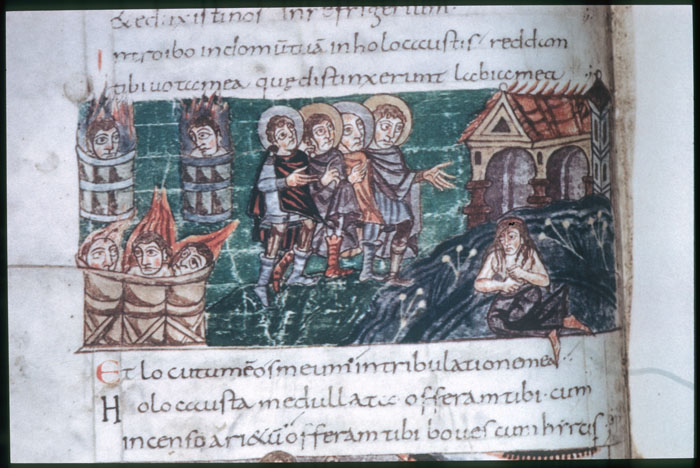 & eduxisti nos in refrigerium·
introibo indomūtuā inholocaustis; reddam
tibi vota mea quę distinxerunt labia mea
Et locutumē os meum intribulatione mea
Holocausta medullata offeram tibi cum
incenso ariętū offeram tibi boves cum hircis